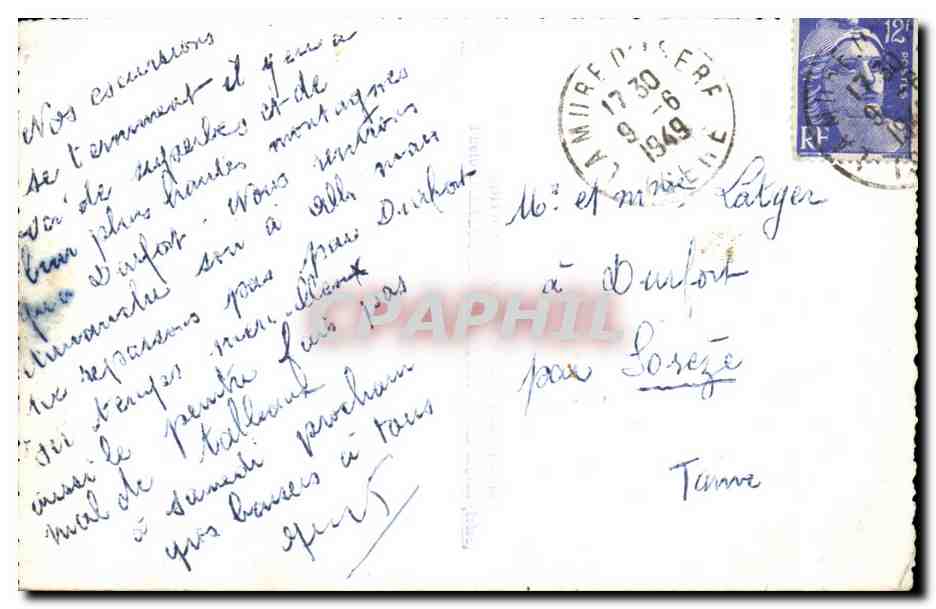 Nos escursions
se terminent il y en a
de superbes et de
bien plus hautes montagnes
qu'a Durfort. Nous rentrons
dimanche soir à Albi mais
ne repassons pas par Durfort
temps
aussi le peintre fais pas
mal de tableaux
à samedi prochain
gros baisers à tous
LA MURE D'ISERE
17 30
9 -6
1949
ISERE
12F
POSTES
RF
Mr et mme Latger
à Durfort
par Sorèze
Tarn
CPARPHIL